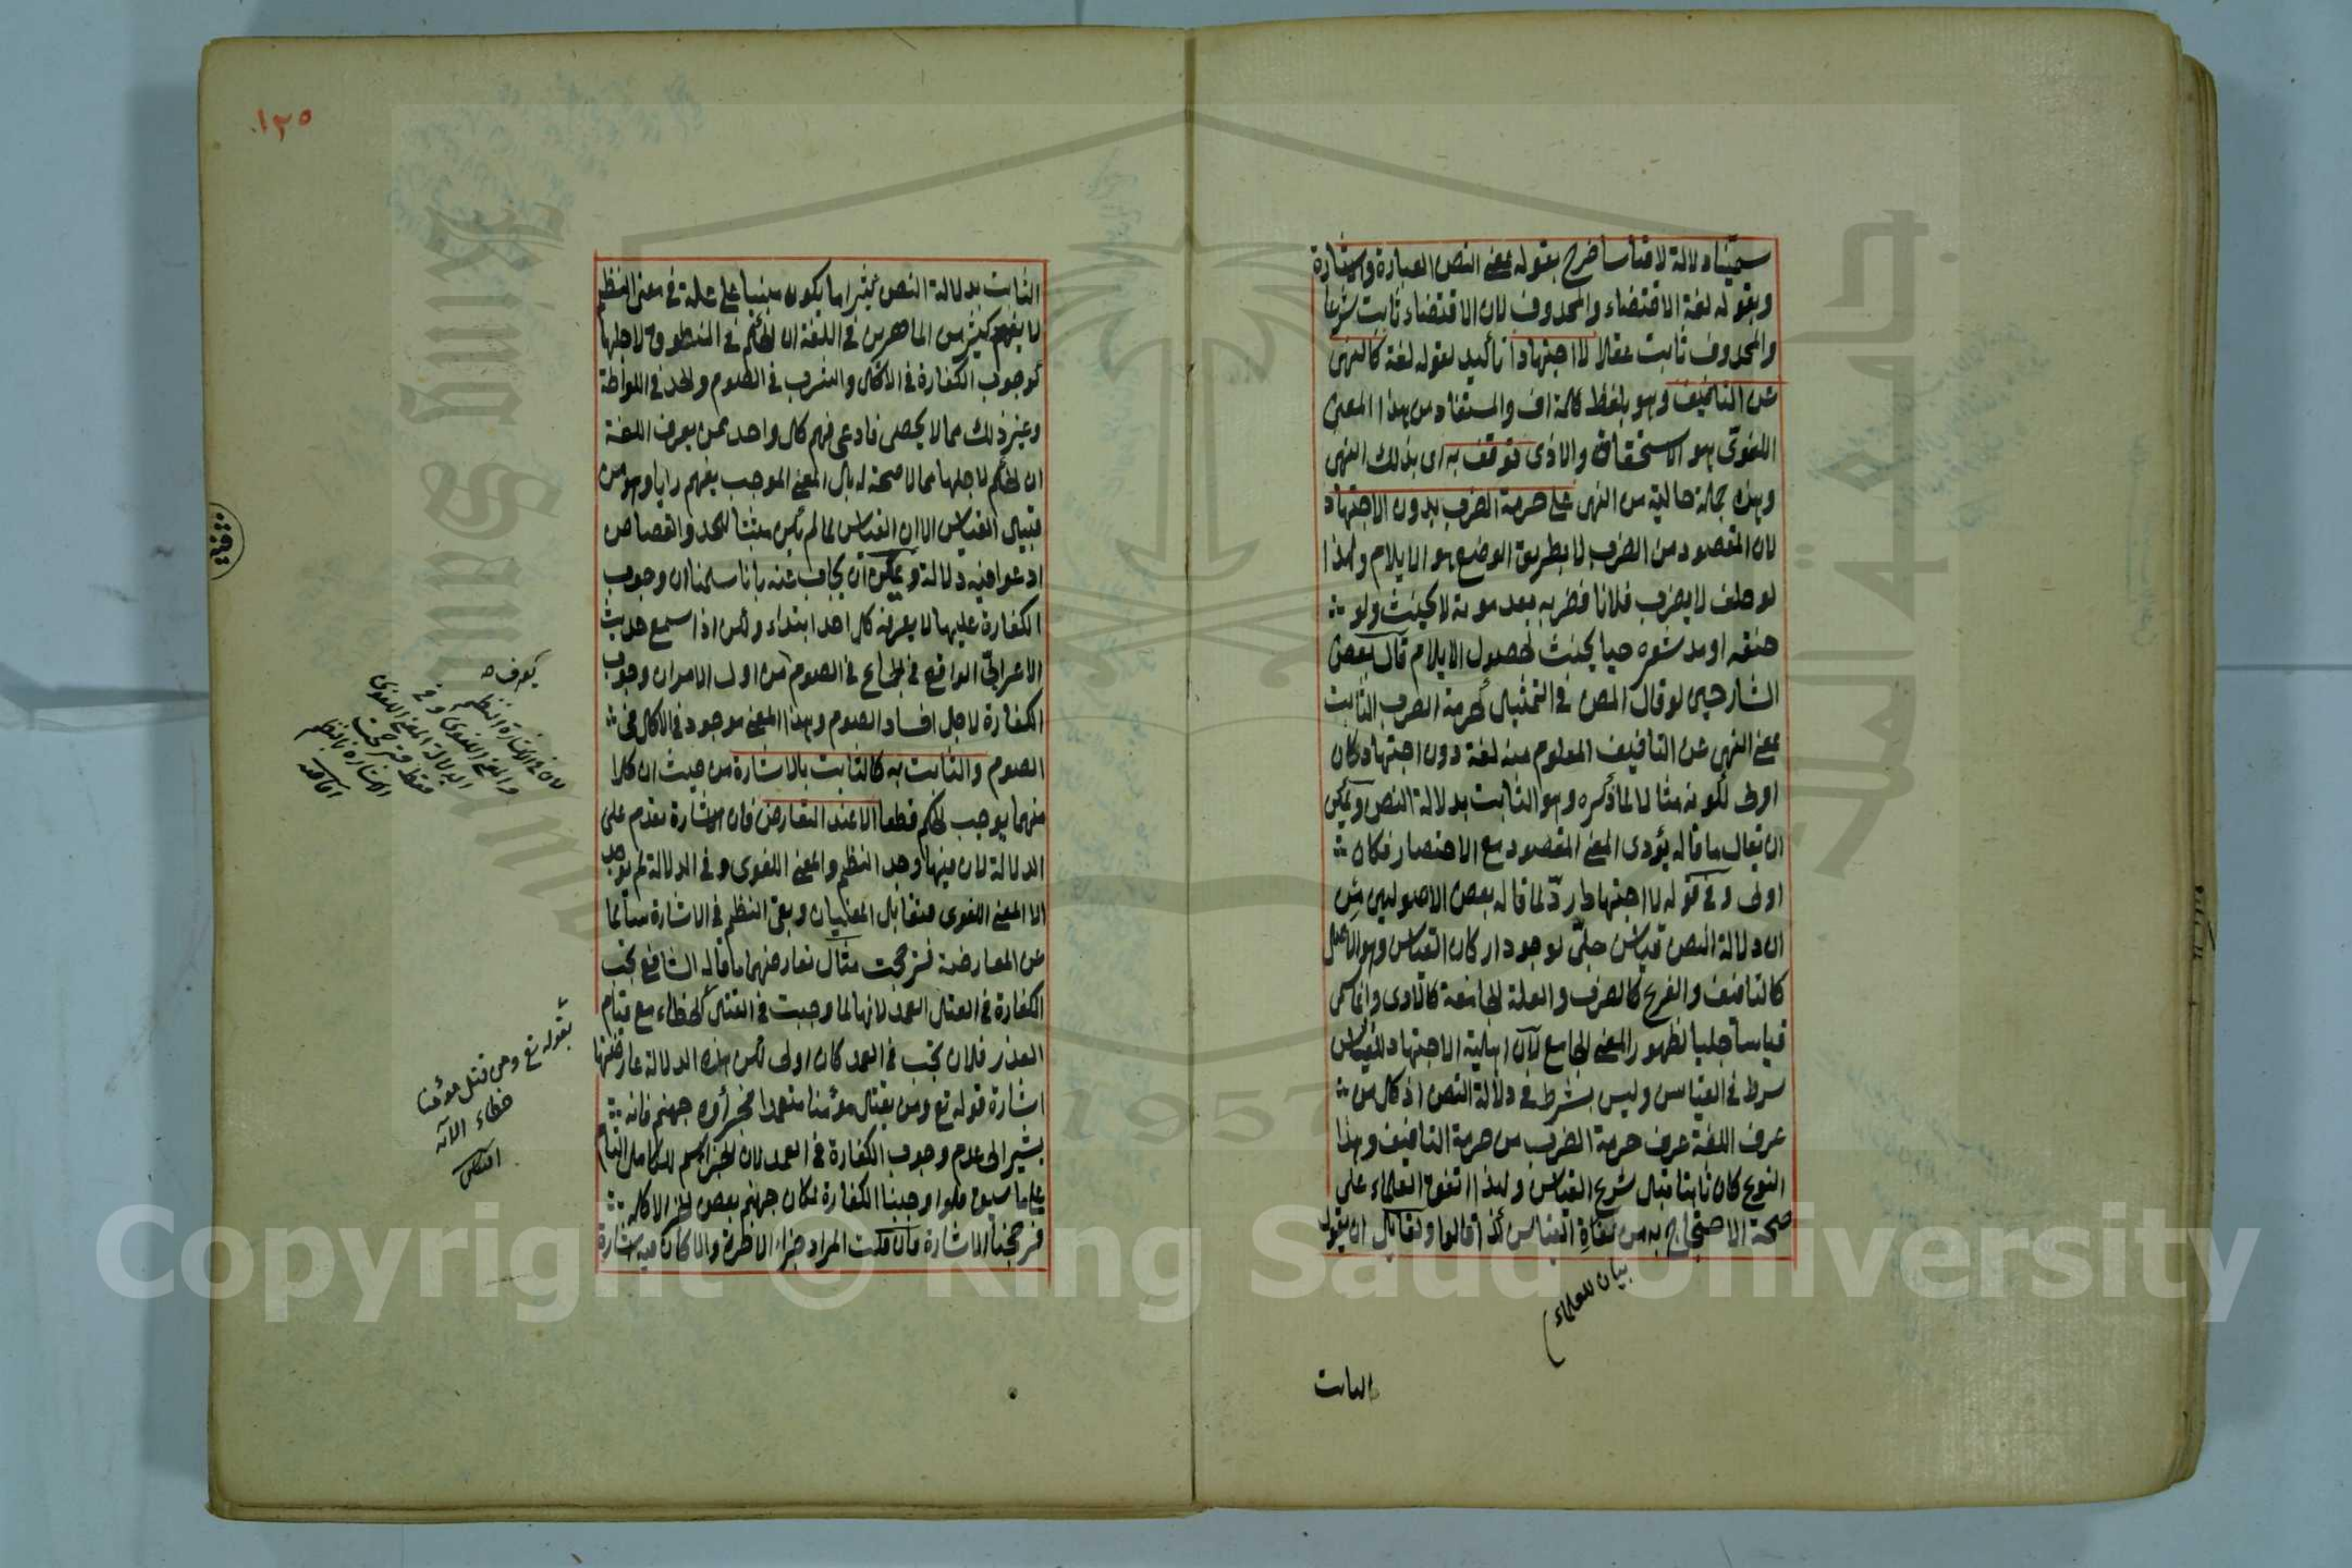 سميناه دلالة لا قياسا خرج بقوله بمعنى النص العبارة والاشارة
وبقوله لغة الاقتضاء والمحذوف لان الاقتضاء ثابت شرعا
والمحذوف ثابت عقلا لا اجتهادا تأكيد لقوله لغة كالنهى
عن التأفيف وهو بلفظ كلمة اف والمستفاد من هذا المعنى
اللغوى هو الاستخفاف والاذى توقف به اى بذلك النهى
وهذه جملة حالية من النهى على حرمة الضرب بدون الاجتهاد
لان المقصود من الضرب لا بطريق الوضع هو الايلام ولهذا
لو حلف لا يضرب فلانا فضربه بعد موته لا يحنث ولو
خنقه او مد شعره حيا يحنث لحصول الايلام قال بعض
الشارحين لو قال المص فى التمثيل كحرمة الضرب الثابت
بمعنى النهى عن التأفيف المعلوم منه لغة دون اجتهاد كان
اولى لكونه مثالا لما ذكره وهو الثابت بدلالة النص ويمكن
ان يقال ما قاله يؤدى المعنى المقصود مع الاختصار فكان
اولى وفى قوله لا اجتهادا ردّ لما قاله بعض الاصوليين من
ان دلالة النص قياس جلىّ لوجود اركان القياس وهو الاصل
كالتأفيف والفرع كالضرب والعلة الجامعة كالاذى وانما سمى
قياسا جليا لظهور المعنى الجامع لان اهلية الاجتهاد للقياس
شرط فى القياس وليس بشرط فى دلالة النص اذ كل من
عرف اللغة عرف حرمة الضرب من حرمة التأفيف وهذا
النوع كان ثابتا قبل شرع القياس ولهذا اتفق العلماء على
صحة الاحتجاج به من نفاة القياس كذا قالوا ولقائل ان يقول
بيان للعلماء
الثابت
١٢٥
الثابت بدلالة النص كثيرا ما يكون مبنيا على علة فى معنى النظم
لا يفهم كثير من الماهرين فى اللغة ان الحكم فى المنطوق لاجلها
كوجوب الكفارة فى الاكل والشرب فى الصوم والحد فى اللواطة
وغير ذلك مما لا يحصى فادعى فهم كل واحد ممن يعرف اللغة
ان الحكم لاجلها مما لا صحة له بل المعنى الموجب يفهم رايا وهو من
قبيل القياس الا ان القياس لما لم يكن مثبتا للحد والقصاص
ادعوا فيه دلالة ويمكن ان يجاب عنه بانا سلمنا ان وجوب
الكفارة عليها لا يعرفه كل احد ابتداء ولكن اذا سمع حديث
الاعرابىّ الواقع فى الجماع فى الصوم من اول الامر ان وجوب
الكفارة لاجل افساد الصوم وهذا المعنى موجود فى الاكل فى
الصوم والثابت به كالثابت بالاشارة من حيث ان كلا
منهما يوجب الحكم قطعا الا عند التعارض فان الاشارة تقدم على
الدلالة لان فيها وجد النظم والمعنى اللغوى وفى الدلالة لم يوجد
الا المعنى اللغوى فتقابل المعنيان وبقى النظم فى الاشارة سالما
عن المعارضة فترجحت مثال تعارضهما ما قاله الشافعى تجب
الكفارة فى القتل العمد لانها لما وجبت فى القتل الخطاء مع قيام
العذر فلان تجب فى العمد كان اولى لكن هذه الدلالة عارضتها
اشارة قوله تع ومن يقتل مؤمنا متعمدا فجزاؤه جهنم فانه
يشير الى عدم وجوب الكفارة فى العمد لان الجزاء اسم للكامل التام
على ما سبق فلو اوجبنا الكفارة لكان جهنم بعض الجزاء لا كله
فرجحنا الاشارة فان قلت المراد جزاء الاخرة والا لكان فيه اشارة
يعرف
الاشارة النظم
والمعنى اللغوى وفى
الدلالة المعنى اللغوى
فقط فترجحت
الاشارة بالنظم
بقوله تع ومن قتل مؤمنا
خطاء الآية